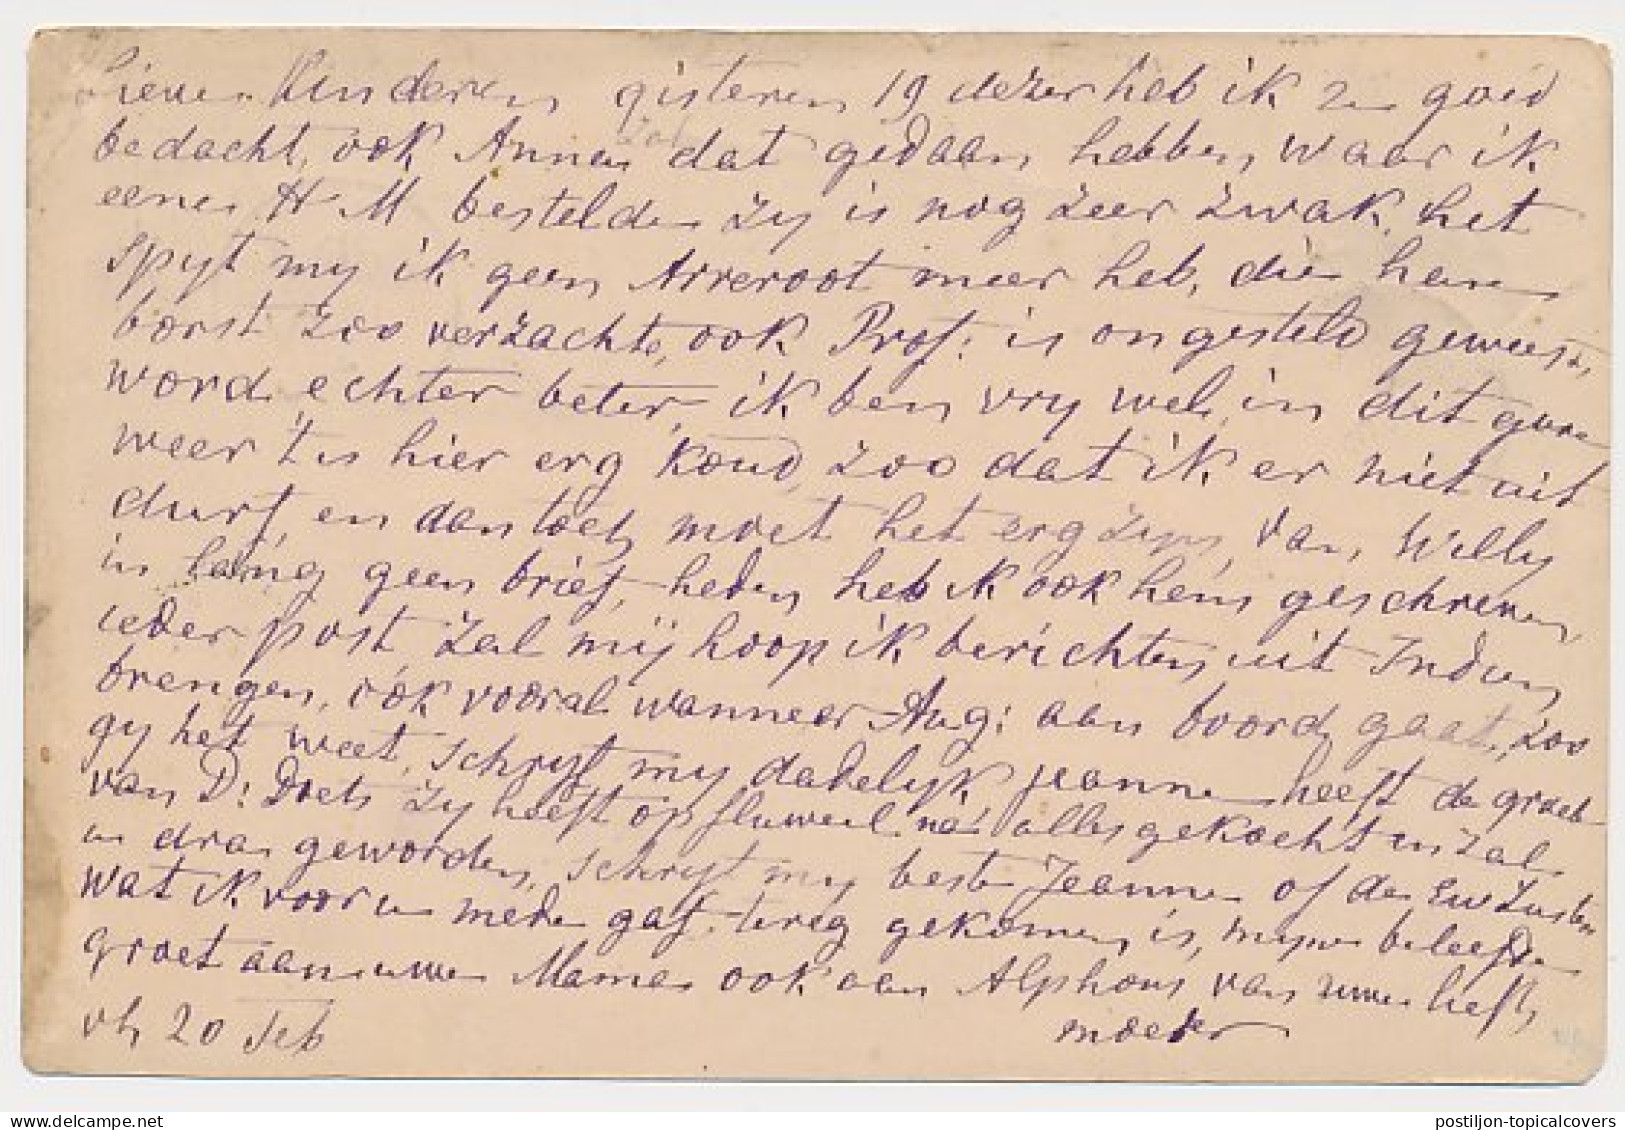 Lieve Kinderen gisteren 19 dezer heb ik zo goed
bedacht, ook Anna zal dat gedaan hebben waar ik
eene H M bestelde zy is nog zeer zwak, het
spyt my ik geen Arreroot meer heb, die hem
borst zoo verzachte, ook Prof: is ongesteld geweest,
word echter beter, ik ben vry wel, in dit gure
weer 't is hier erg koud, zoo dat ik er niet uit
durf, en dan toch moet het erg zyn, Van Willy
in lang geen brief, heden heb ik ook hem geschreven,
ieder post zal mij hoop ik berichten uit Indien
brengen, ook vooral wanneer Aug: aan boord gaat, zoo
gy het weet, schryf my dadelyk Jeanne heeft de groete
van D: Doets zy heeft op fluweel na alles gekocht en zal
u dra geworden, schryf my beste Jeanne of de Ew Zuster
wat ik voor u mede gaf terug gekomen is, myne beleefde
groet aan uwe Mama ook aan Alphons van uwe liefh
moeder
vh 20 Feb
postiljon-topicalcovers